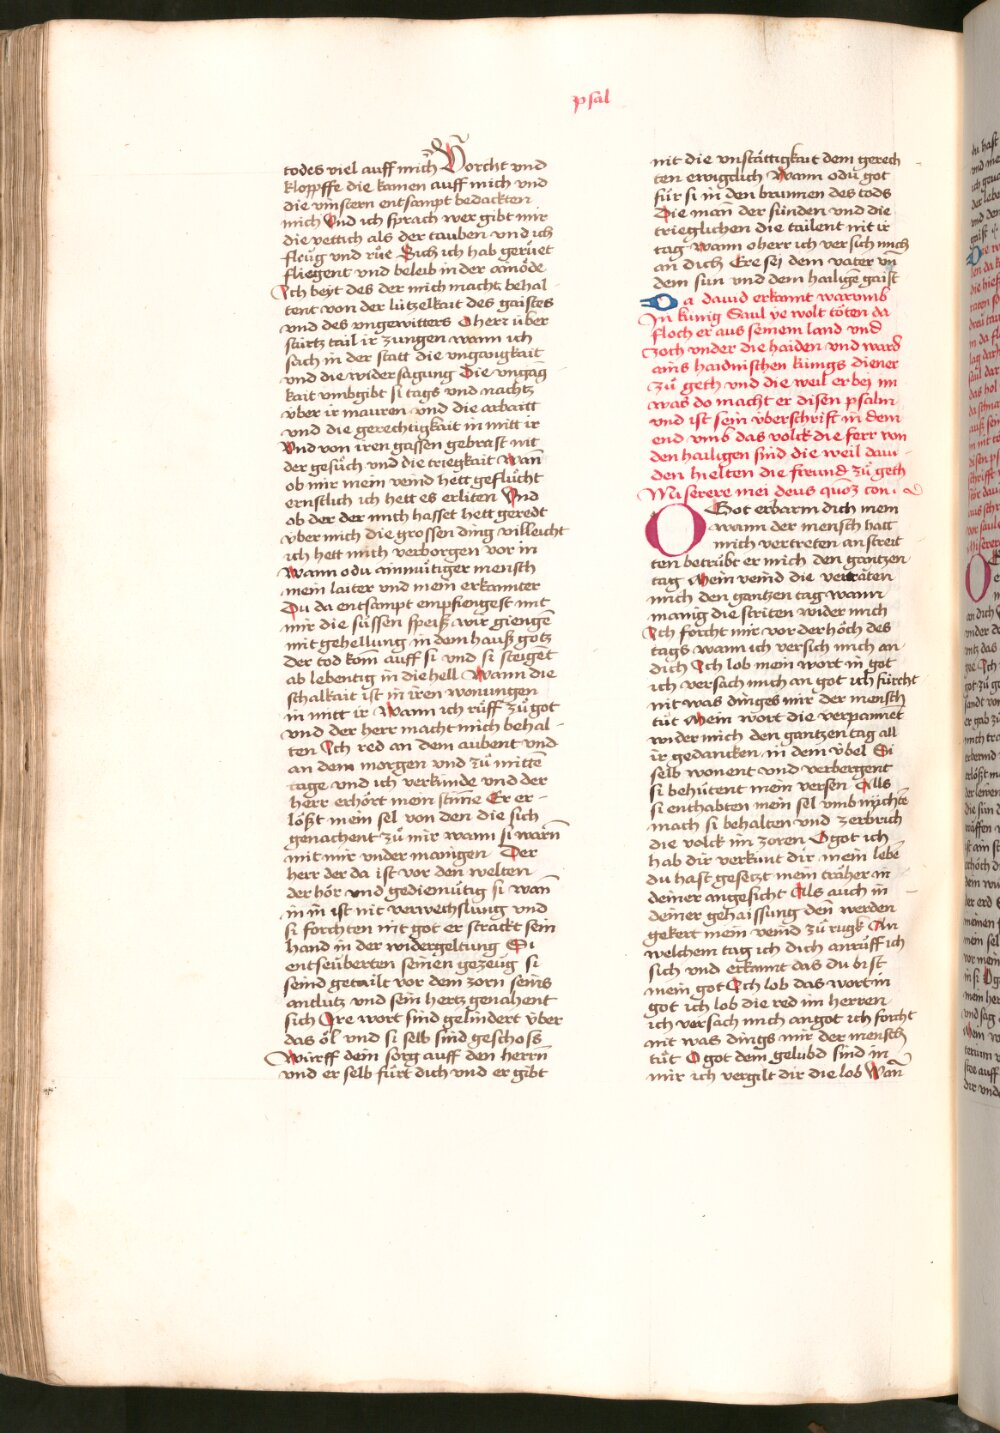 psal
todes viel auff mich Vorcht vnd
kloppffe die kamen auff mich vnd
die vinstern entsampt bedackten
mich Vnd ich sprach wer gibt mir
die vettich als der tauben vnd ich
fleůg vnd růe Sich ich hab gerůet
fliegent vnd beleib in der amöde
Ich beyt des der mich macht behal-
tent von der lützelkait des gaistes
vnd des vngewitters O herr über
stürtz tail ir zungen wann ich
sach in der statt die vngangkait
vnd die widersagung Die vngāg
kait vmbgibt si tags vnd nachtz
vber ir mauren vnd die arbaitt
vnd die gerechtigkait in mitt ir
Vnd von iren gassen gebrast nit
der gesůch vnd die triegkait Wan̄
ob mir mein veind hett geflůcht
ernstlich ich hett es erliten Vnd
ob der der mich hasset hett geredt
vber mich die grossen ding villeicht
ich hett mich verborgen vor in
Wann o du ainmütiger mensch
mein laiter vnd mein erkannter
Du da entsampt empfiengest mit
mir die süssen speiß wir giengē
mit gehellung in dem hauß gotz
der tod kom auff si vnd si steigēt
ab lebentig in die hell Wann die
schalkait ist in iren wonungen
in mitt ir Wann ich růff zů got
vnd der herr macht mich behal-
ten Ich red an dem aubent vnd
an dem morgen vnd zů mitte
tage vnd ich verkünde vnd der
herr erhört mein stim̄e Er er-
lößt mein sel von den die sich
genachent zů mir wann si warn̄
mit mir vnder manigen Der
herr der da ist vor den welten
der hör vnd gediemütig si wan̄
in in ist nit verwechslung vnd
si forchten nit got er strackt sein
hand in der widergeltung Si
entseüberten seinen gezeüg si
seind getailt vor dem zorn seins
antlutz vnd sein hertz genahent
sich Ire wort sind gelindert über
das öl vnd si selb sind geschoss
Würff dein sorg auff den herrn̄
vnd er selb fürt dich vnd er gibt
nit die vnstättigkait dem gerech
ten ewigclich Wann o du got
für si in den brunnen des tods
Die man der sünden vnd die
trieglichen die tailent nit ir
tag Wann o herr ich versich mich
an dich Ere sei dem vater vn̄
dem sun vnd dem hailigē gaist
Da dauid erkannt warumb
In künig Saul ye wolt töten da
floch er aus seinem land vnd
zoch vnder die haiden vnd ward
ains haidnischen künigs diener
zů geth vnd die weil er bei im
was do macht er disen psalm
vnd ist sein vberschrift in dem
end vmb das volck die ferr von
den hailigen sind die weil daui-
den hielten die freund zů geth
Miserere mei deus quōz con.
O Got erbarm dich mein
wann der mensch hatt
mich vertreten an streit
ten betrübt er mich den gantzen
tag Mein veind die vertraten
mich den gantzen tag wann
manig die striten wider mich
Ich forcht mir vor der höch des
tags wann ich versich mich an
dich Ich lob mein wort in got
ich versach mich an got ich fürcht
nit was dinges mir der mensch
tůt Mein wort die verpannēt
wider mich den gantzen tag all
ir gedancken in dem vbel Si
selb wonent vnd verbergent
si behütent mein versen Als
si enthabten mein sel vmb nychte
mach si behalten vnd zerbrich
die volck im zoren O got ich
hab dir verkünt dir mein lebē
du hast gesetzt mein träher in
deiner angesicht Als auch in
deiner gehaissung den̄ werden
gekert mein veind zů rugk An
welchem tag ich dich anrůff ich
sich vnd erkannt das du bist
mein got Ich lob das wort in
got ich lob die red im herren
ich versach mich an got ich forcht
nit was dings mir der mensch
tůt O got dem gelübd sind in
mir ich vergilt dir die lob Wan̄